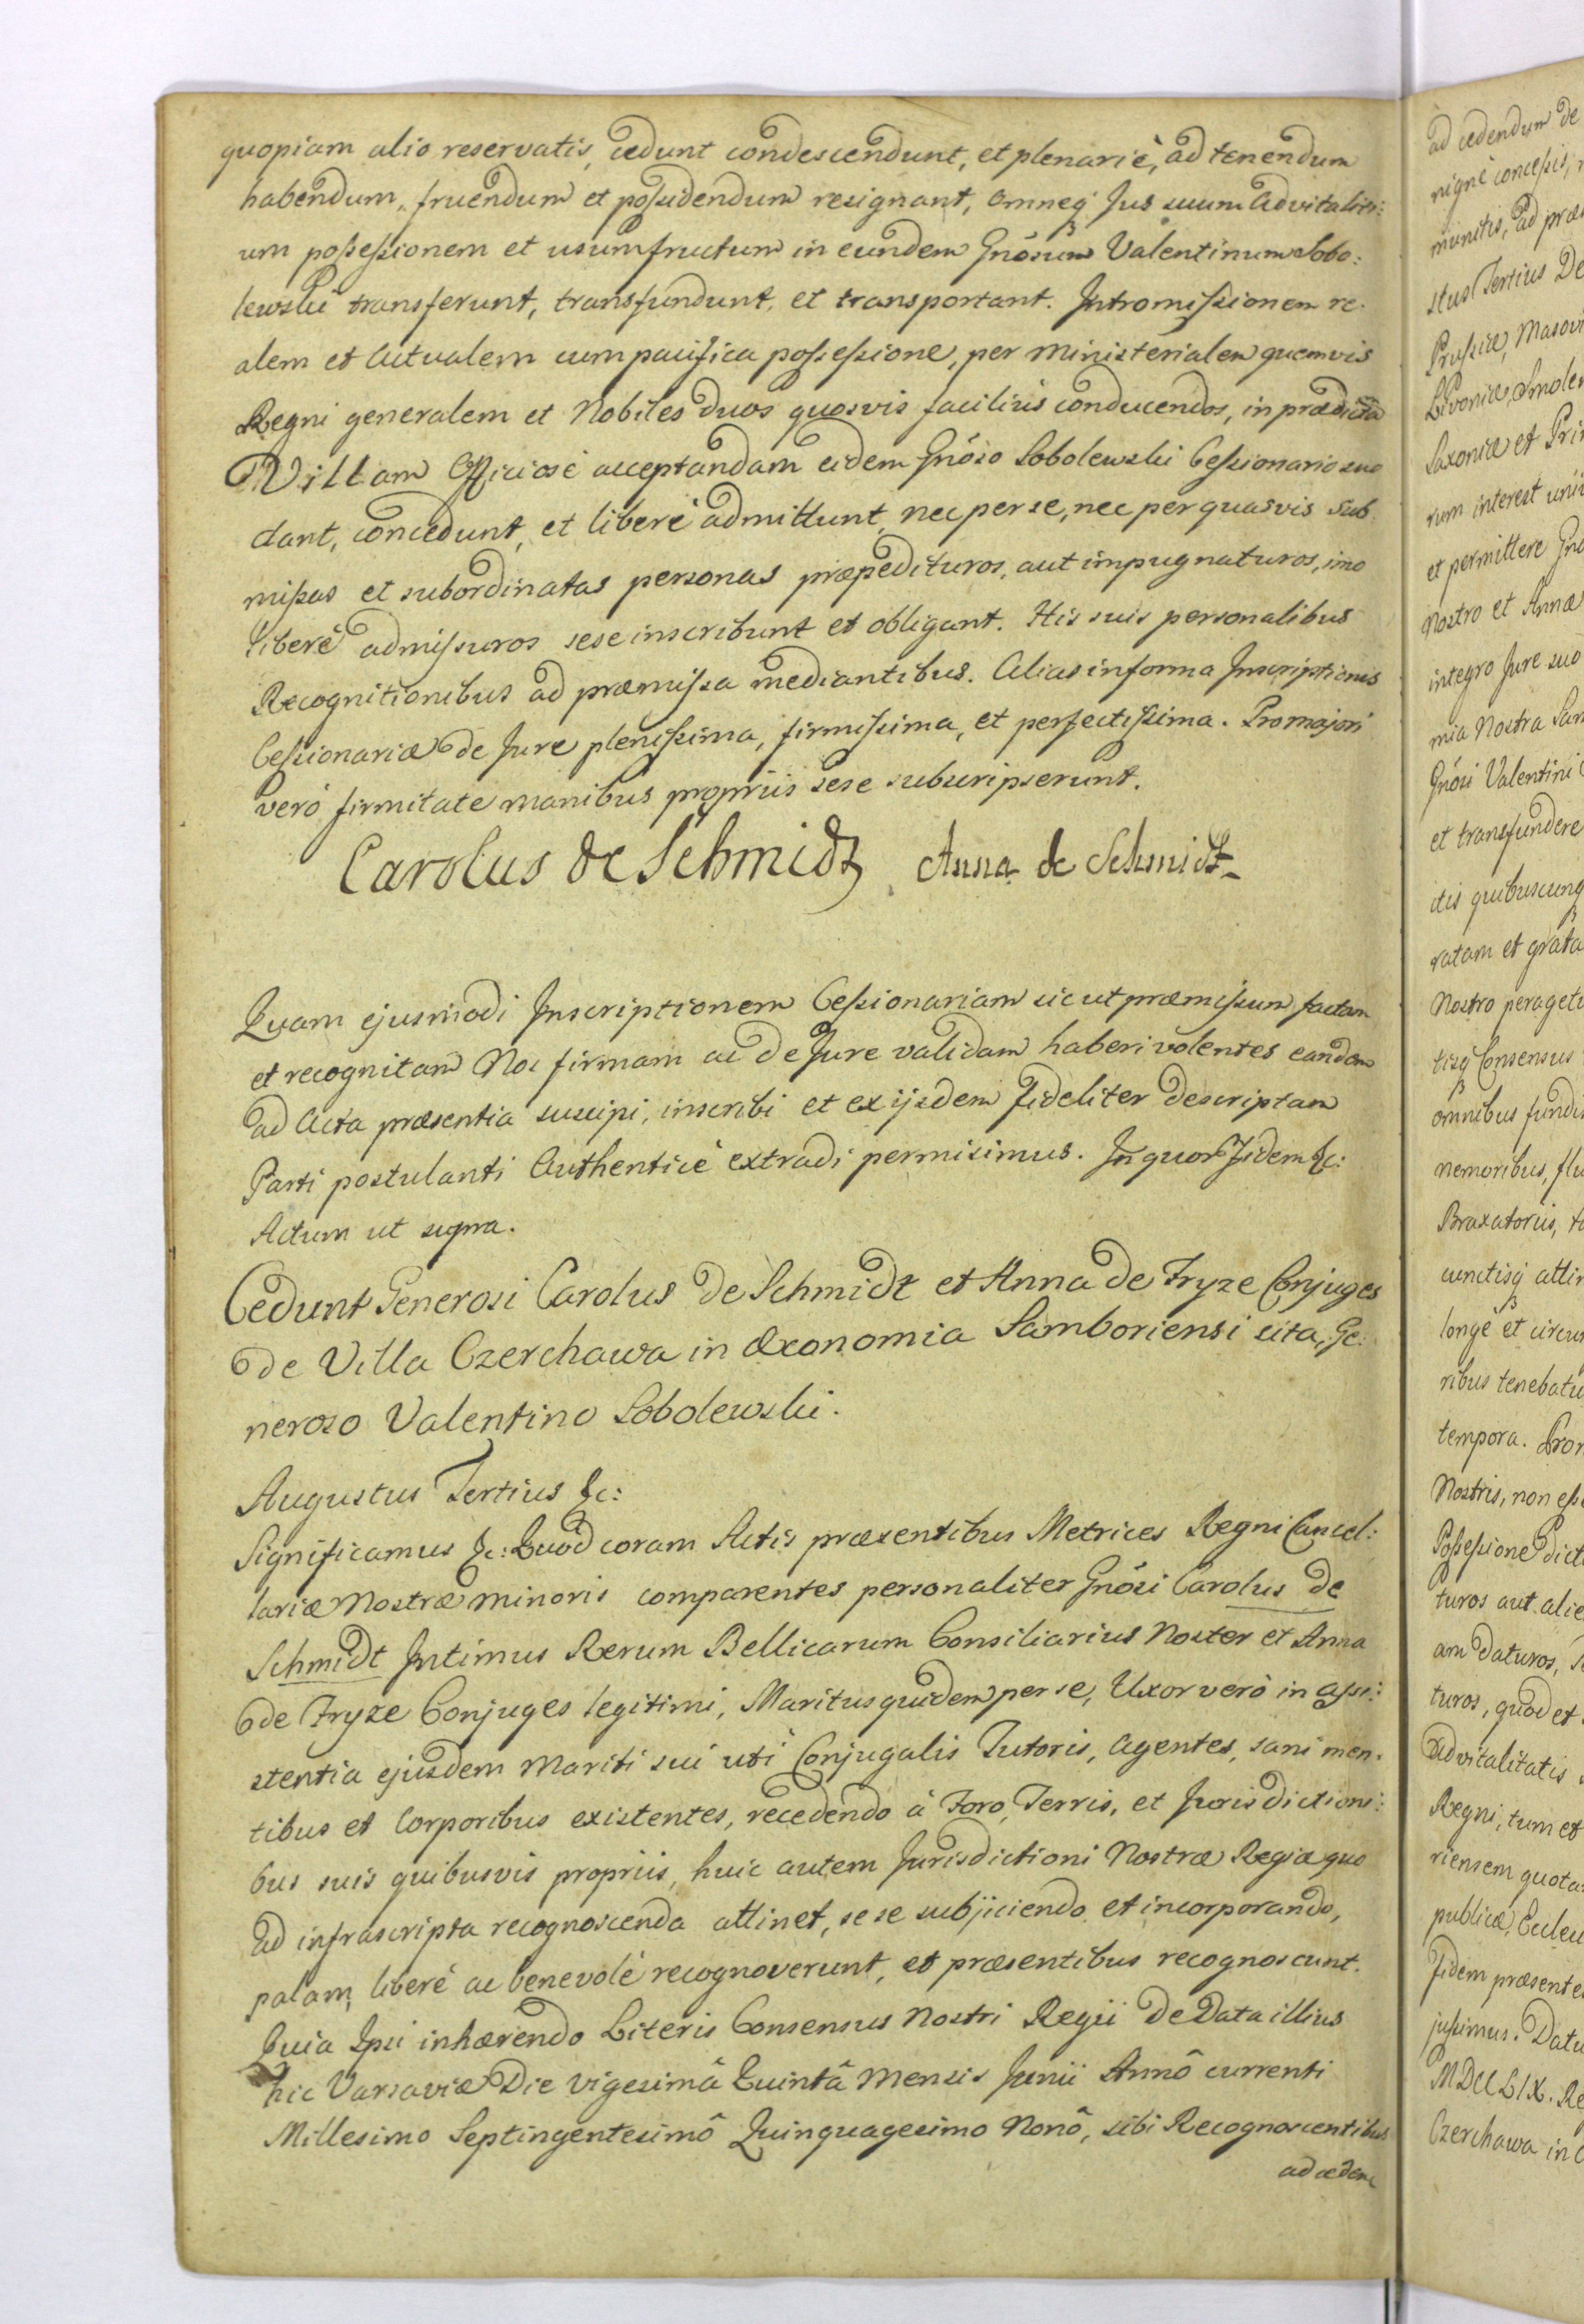 quopiam alio reservatis, cedunt condescendunt, et plenariè, ad tenendum
habendum, fruendum et possidendum resignant, omneq Jus suum advitaliti:
um possessionem et usumfructum in eundem Gnosum Valentinum Sobo:
lewski transferunt, transfundunt, et transportant. Intromissionem re:
alem et Actualem cum pacifica possessione, per Ministerialem quemvis
Regni generalem et Nobiles duos quosvis facilius conducendos, in prædicta
Villam Officiosè acceptandam eidem Gnoso Sobolewski Cessionario suo
dant, concedunt, et liberè admittunt, nec per se, nec per quasvis sub
missas et subordinatas personas præpedituros, aut impugnaturos, imo
liberè admissuros sese inscribunt et obligant. His suis personalibus
Recognitionibus ad præmissa mediantibus. Alias in forma Inscriptionis
Cessionariæ de Jure plenissima, firmissima, et perfectissima. Pro majori
verò firmitate manibus propriis sese subscripserunt.
Carolus de Schmidt, Anna de Schmidt
Quam ejusmodi Inscriptionem Cessionariam sic ut præmissum factam
et recognitam Nos firmam ac de Jure validam haberi volentes eandem
ad Acta præsentia suscipi, inscribi et ex ijsdem fideliter descriptam
Parti postulanti Authenticè extradi permisimus. In quor Fidem &c:
Actum ut supra.
Cedunt Generosi Carolus de Schmidt et Anna de Fryze Conjuges
de Villa Czerchawa in Œconomia Samboriensi sita, Ge:
neroso Valentino Sobolewski.
Augustus Tertius &c:
Significamus &c: Quod coram Actis præsentibus Metrices Regni Cancel:
lariæ Nostræ minoris comparentes personaliter Gnosi Carolus de
Schmidt Intimus Rerum Bellicarum Consiliarius Noster et Anna
de Fryze Conjuges legitimi, Maritus quidem per se, Uxor verò in assi:
stentia ejusdem Mariti sui uti Conjugalis Tutoris, agentes, sani men:
tibus et Corporibus existentes, recedendo à Foro, Terris, et Jurisdictioni:
bus suis quibusvis propriis, huic autem Jurisdictioni Nostræ Regiæ quo
ad infrascripta recognoscenda attinet, sese subjiciendo et incorporando,
palam, liberè ac benevolè recognoverunt, et præsentibus recognoscunt.
Quia Ipsi inhærendo Literis Consensus Nostri Regii de Data illius
hic Varsaviæ Die Vigesimâ Quintâ Mensis Junii Annô currenti
Millesimo Septingentesimô Quinquagesimo Nonô, sibi Recognoscentibus
ad cedem
ad cedendum de
nignè concessis,
munitis, ad præ
stus Tertius De
Prussiæ, Masovi
Livoniæ, Smolen
Saxoniæ et Prin
rum interest uni
et permittere Gno
Nostro et Annæ
integro Jure suo
mia Nostra Sam
Gnosi Valentini
et transfundere
ctis quibuscunq
ratam et grata
Nostro peragetu
tisq Consensus
omnibus fundi
nemoribus, flu
Braxatoriis, ta
cunctisq attin
longè et circum
ribus tenebatu
tempora. Pro
Nostris, non esse
Possessione dict
turos aut alie
am daturos,
turos, quod et
Advitalitatis
Regni, tum et
riensem quota
publicæ, Eccles
Fidem præsentes
jussimus. Datu
MDCCLIX. Re
Czerchawa in